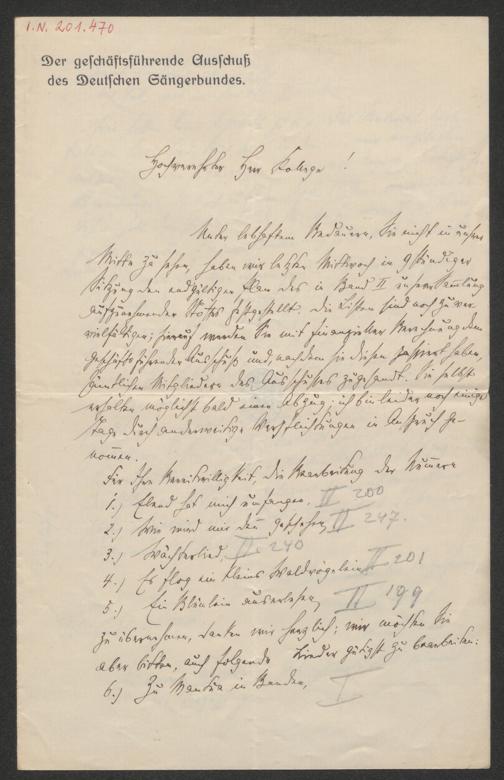 I.N. 201.470
Der geschäftsführende Ausschuß
des Deutschen Sängerbundes.
Hochverehrter Herr Kollege!
Unter lebhaftem Bedauern, Sie nicht in unserer
Mitte zu sehen, haben wir letzten Mittwoch in 9stündiger
Sitzung den endgiltigen Plan des in Band II unserer Sammlung
aufzunehmenden Stoffes festgestellt. Die Listen sind noch zu ver-
vielfältigen; hierauf werden Sie mit finanzieller Berechnung dem
geschäftsführenden Ausschuß und, nachdem sie diesen passiert haben,
sämtlichen Mitgliedern des Ausschusses zugesandt. Sie selbst
erhalten möglichst bald einen Abzug; ich bin leider noch einige
Tage durch anderweitige Verpflichtungen in Anspruch ge-
nommen.
Für Ihre Bereitwilligkeit, die Bearbeitung der Nummern
1.) Elend hat mich umfangen, II 200
2.) Wie wird mir denn geschehen, II 247.
3.) Wächterlied, II 240
4.) Es flog ein kleins Waldvögelein II 201
5.) Ein Blümlein auserlesen, II 199
zu übernehmen, danken wir herzlich; wir möchten Sie
aber bitten, auch folgende Lieder gütigst zu bearbeiten:
6.) Zu Mantua in Banden, I